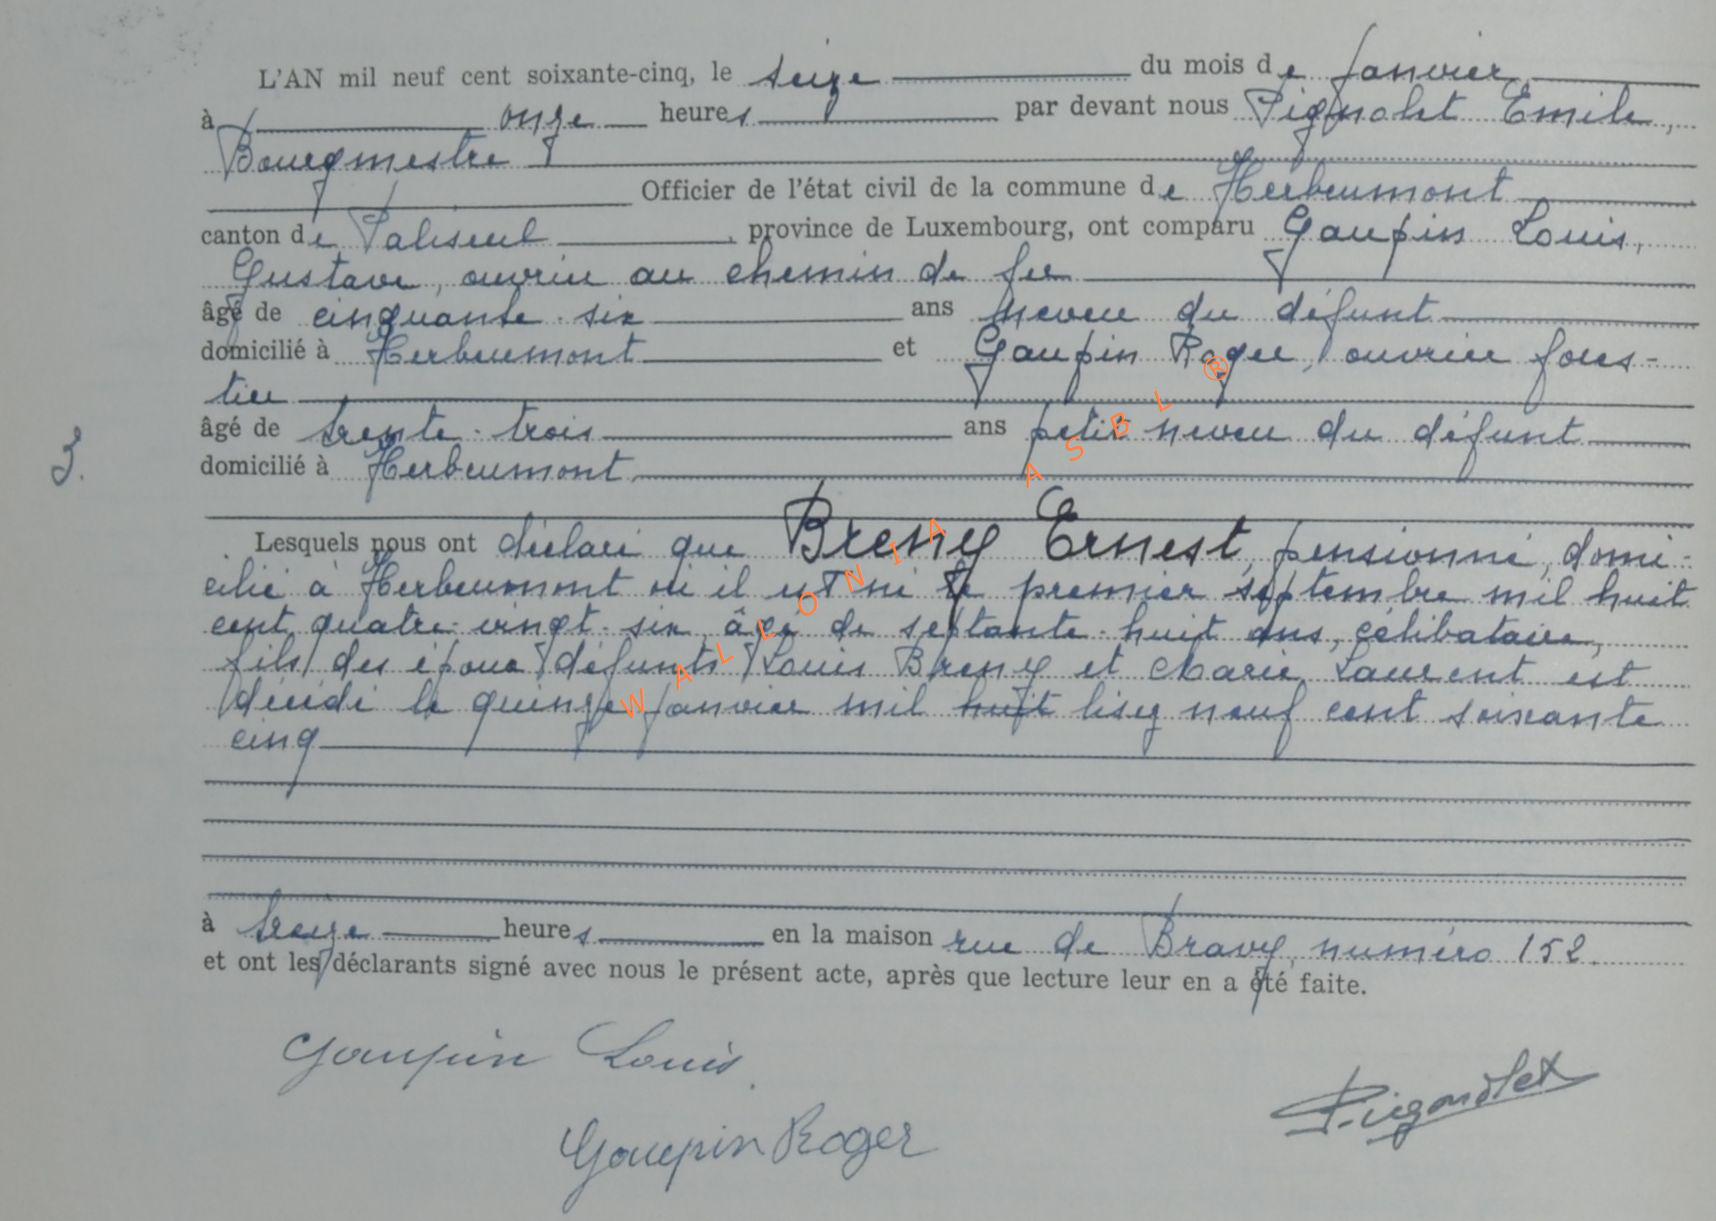 L'AN mil neuf cent soixante-cinq, le seize du mois de janvier
à onze heures par devant nous Pignolet Emile,
Bourgmestre
Officier de l'état civil de la commune de Herbeumont
canton de Paliseul, province de Luxembourg, ont comparu Gaupin Louis,
Gustave, ouvrier au chemin de fer
âgé de cinquante-six ans neveu du défunt
domicilié à Herbeumont et Gaupin Roger, ouvrier fores-
tier
âgé de trente-trois ans petit neveu du défunt
3.
domicilié à Herbeumont
Lesquels nous ont déclaré que Breny Ernest, pensionné, domi-
cilié à Herbeumont où il est né le premier septembre mil huit
cent quatre-vingt-six, âgé de septante-huit ans, célibataire,
fils des époux défunts Louis Breny et Marie Laurent est
décédé le quinze janvier mil huit lisez neuf cent soixante
cinq
à treize heures en la maison rue de Bravy, numéro 152.
et ont les déclarants signé avec nous le présent acte, après que lecture leur en a été faite.
Gaupin Louis.
Pignolet
Gaupin Roger
WALLONIA ASBL ®